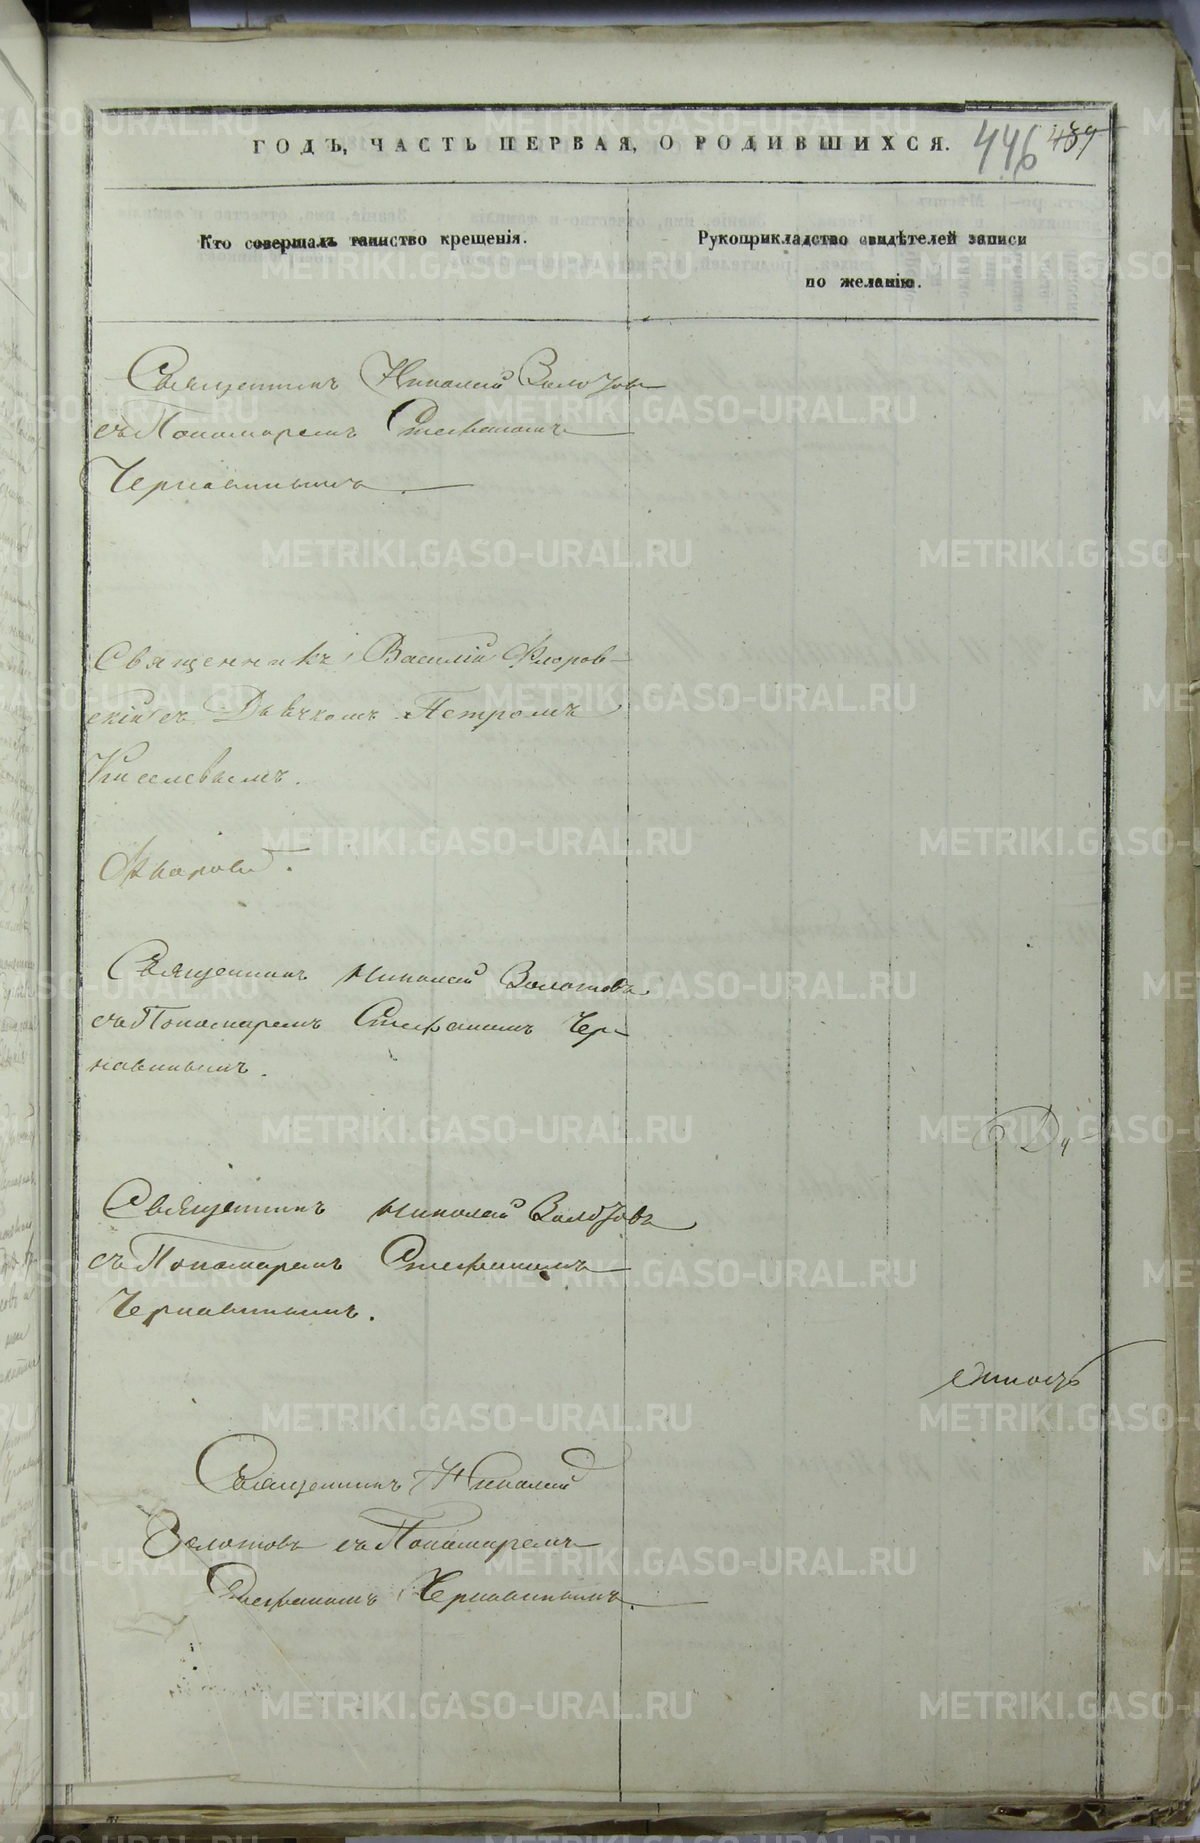 ГОДЪ, ЧАСТЬ ПЕРВАЯ, О РОДИВШИХСЯ. 446 489
Кто совершалъ таинство крещенія.
Рукоприкладство свидѣтелей записи
по желанію.
Священникъ Николай Золотовъ
съ Пономаремъ Стефаномъ
Чернавинымъ
Священникъ Василій Флоров-
скій съ Дьячкомъ Петромъ
Киселевымъ.
Священникъ Николай Золотовъ
съ Пономаремъ Стефаномъ Чер-
навинымъ.
Священникъ Николай Золотовъ
съ Пономаремъ Стефаномъ
Чернавинымъ.
Священникъ Николай
Золотовъ съ Пономаремъ
Стефаномъ Чернавинымъ.
METRIKI.GASO-URAL.RU